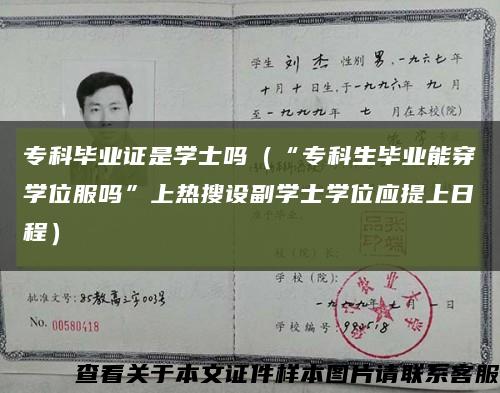 学生 刘杰 性别 男,一九六七年
十月十日生,于一九九六年 九月
至一九九九年 七月在本校(院)
专科毕业证是学士吗(“专科生毕业能穿
学位服吗”上热搜设副学士学位应提上日
程)
校(院)长:
学校(院):
一九九九年七月一日
批准文号:85教高三字003号
No. 00580418
学校编号:990518
查看关于本文证件样本图片请联系客服